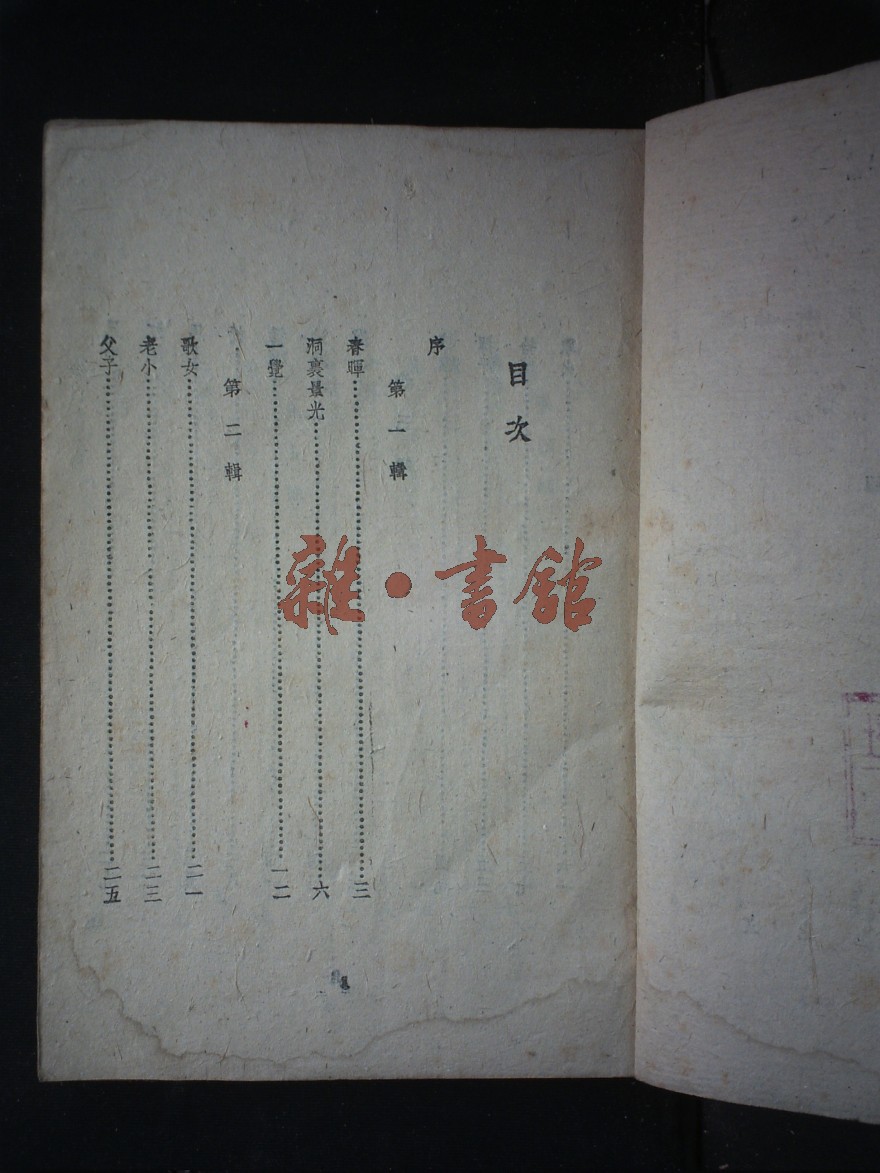 目次
序
第一輯
春暉…………三
洞裏景光…………六
一覺…………一二
第二輯
歌女…………二一
老小…………二三
父子…………二五
雜·書館